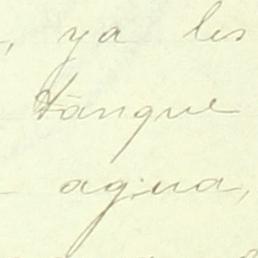 , ya les
tanque
agua,